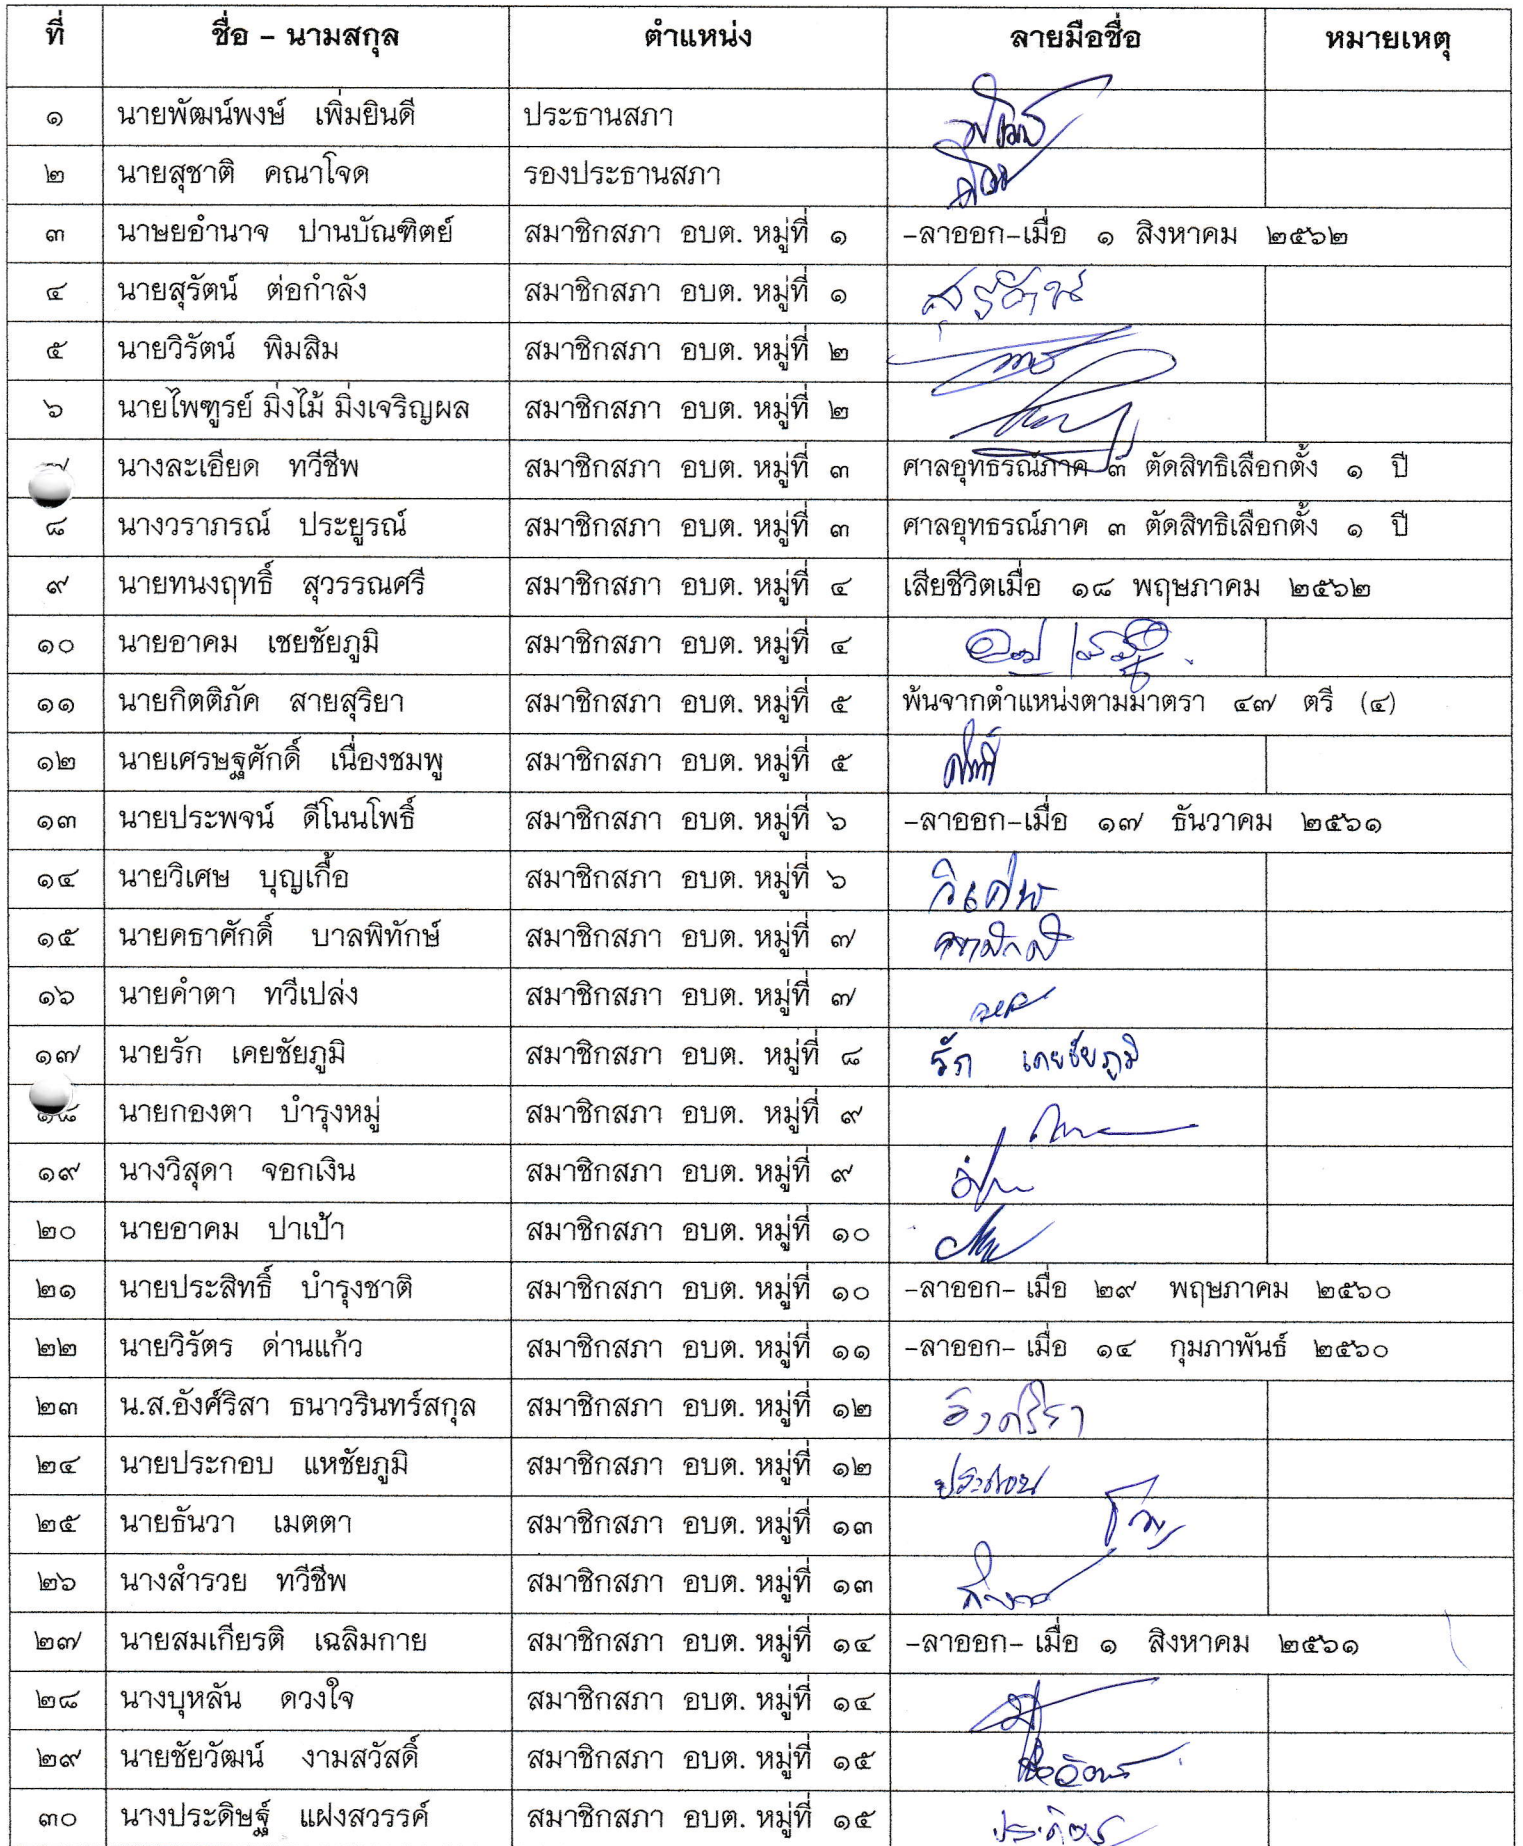 ที่ ชื่อ – นามสกุล ตำแหน่ง ลายมือชื่อ หมายเหตุ
๑ นายพัฒน์พงษ์ เพิ่มยินดี ประธานสภา
๒ นายสุชาติ คณาโจด รองประธานสภา
๓ นาษยอำนาจ ปานบัณฑิตย์ สมาชิกสภา อบต. หมู่ที่ ๑ -ลาออก-เมื่อ ๑ สิงหาคม ๒๕๖๒
๔ นายสุรัตน์ ต่อกำลัง สมาชิกสภา อบต. หมู่ที่ ๑ สุรัตน์
๕ นายวิรัตน์ พิมสิม สมาชิกสภา อบต. หมู่ที่ ๒
๖ นายไพฑูรย์ มิ่งไม้ มิ่งเจริญผล สมาชิกสภา อบต. หมู่ที่ ๒
นางละเอียด ทวีชีพ สมาชิกสภา อบต. หมู่ที่ ๓ ศาลอุทธรณ์ภาค ๓ ตัดสิทธิเลือกตั้ง ๑ ปี
๘ นางวราภรณ์ ประยูรณ์ สมาชิกสภา อบต. หมู่ที่ ๓ ศาลอุทธรณ์ภาค ๓ ตัดสิทธิเลือกตั้ง ๑ ปี
๙ นายทนงฤทธิ์ สุวรรณศรี สมาชิกสภา อบต. หมู่ที่ ๔ เสียชีวิตเมื่อ ๑๘ พฤษภาคม ๒๕๖๒
๑๐ นายอาคม เชยชัยภูมิ สมาชิกสภา อบต. หมู่ที่ ๔
๑๑ นายกิตติภัค สายสุริยา สมาชิกสภา อบต. หมู่ที่ ๕ พ้นจากตำแหน่งตามมาตรา ๔๗ ตรี (๔)
๑๒ นายเศรษฐศักดิ์ เนื่องชมพู สมาชิกสภา อบต. หมู่ที่ ๕
๑๓ นายประพจน์ ดีโนนโพธิ์ สมาชิกสภา อบต. หมู่ที่ ๖ -ลาออก-เมื่อ ๑๗ ธันวาคม ๒๕๖๑
๑๔ นายวิเศษ บุญเกื้อ สมาชิกสภา อบต. หมู่ที่ ๖ วิเศษ
๑๕ นายคธาศักดิ์ บาลพิทักษ์ สมาชิกสภา อบต. หมู่ที่ ๗
๑๖ นายคำตา ทวีเปล่ง สมาชิกสภา อบต. หมู่ที่ ๗
๑๗ นายรัก เคยชัยภูมิ สมาชิกสภา อบต. หมู่ที่ ๘ รัก เคยชัยภูมิ
๑๘ นายกองตา บำรุงหมู่ สมาชิกสภา อบต. หมู่ที่ ๙
๑๙ นางวิสุดา จอกเงิน สมาชิกสภา อบต. หมู่ที่ ๙
๒๐ นายอาคม ปาเป้า สมาชิกสภา อบต. หมู่ที่ ๑๐
๒๑ นายประสิทธิ์ บำรุงชาติ สมาชิกสภา อบต. หมู่ที่ ๑๐ -ลาออก- เมื่อ ๒๙ พฤษภาคม ๒๕๖๐
๒๒ นายวิรัตร ด่านแก้ว สมาชิกสภา อบต. หมู่ที่ ๑๑ -ลาออก- เมื่อ ๑๔ กุมภาพันธ์ ๒๕๖๐
๒๓ น.ส.อังศ์ริสา ธนาวรินทร์สกุล สมาชิกสภา อบต. หมู่ที่ ๑๒
๒๔ นายประกอบ แหชัยภูมิ สมาชิกสภา อบต. หมู่ที่ ๑๒ ประกอบ
๒๕ นายธันวา เมตตา สมาชิกสภา อบต. หมู่ที่ ๑๓
๒๖ นางสำรวย ทวีชีพ สมาชิกสภา อบต. หมู่ที่ ๑๓
๒๗ นายสมเกียรติ เฉลิมกาย สมาชิกสภา อบต. หมู่ที่ ๑๔ -ลาออก- เมื่อ ๑ สิงหาคม ๒๕๖๑
๒๘ นางบุหลัน ดวงใจ สมาชิกสภา อบต. หมู่ที่ ๑๔
๒๙ นายชัยวัฒน์ งามสวัสดิ์ สมาชิกสภา อบต. หมู่ที่ ๑๕
๓๐ นางประดิษฐ์ แฝงสวรรค์ สมาชิกสภา อบต. หมู่ที่ ๑๕